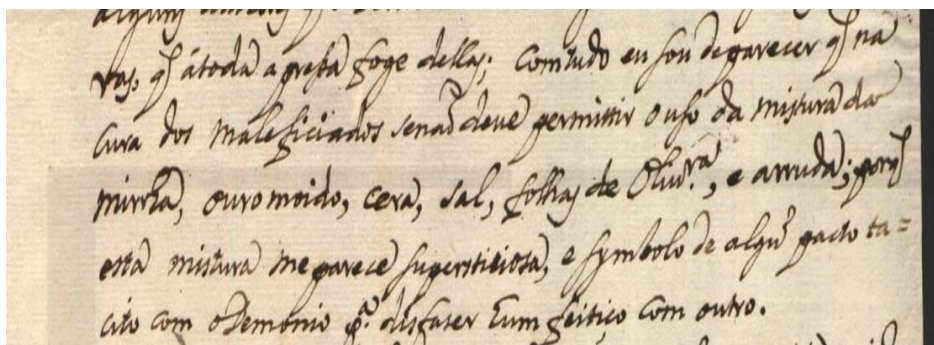 vas; q̃ átoda a pressa foge dellas; comtudo eu sou deparecer q̃ na
cura dos maleficiados senaõ deve permittir ouso da mistura da
mirrha, ouro moido, cera, sal, folhas de Oliv.ra, e arruda; porq̃
esta mistura me parece supersticiosa, e symbolo de algũ pacto ta=
cito com oDemonio p.a disfaser hum feitiço com outro.